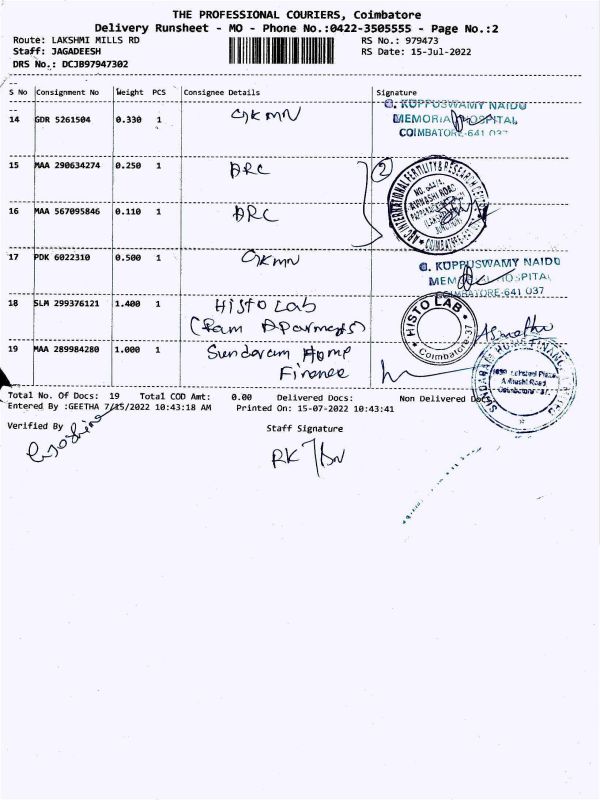 THE PROFESSIONAL COURIERS, Coimbatore
Delivery Runsheet - MO - Phone No.:0422-3505555 - Page No.:2
Route: LAKSHMI MILLS RD RS No.: 979473
Staff: JAGADEESH RS Date: 15-Jul-2022
DRS No.: DCJB97947302
S No Consignment No Weight PCS Consignee Details Signature
14 GDR 5261504 0.330 1 GKMN
G. KUPPUSWAMY NAIDU
MEMORIAL HOSPITAL
COIMBATORE-641 037
15 MAA 290634274 0.250 1 ARC 2
ARC INTERNATIONAL FERTILITY & RESEARCH
AVINASHI ROAD
COIMBATORE
16 MAA 567095846 0.110 1 ARC
17 PDK 6022310 0.500 1 GKMN
G. KUPPUSWAMY NAIDU
MEMORIAL HOSPITAL
COIMBATORE-641 037
18 SLM 299376121 1.400 1 Histo Lab
(Ram Aparments)
HISTO LAB
Coimbatore-37
19 MAA 289984280 1.000 1 Sundaram Home
Finance
SUNDARAM HOME FINANCE LIMITED
Lakshmi Plaza
Avinashi Road
Coimbatore - 37.
Total No. Of Docs: 19 Total COD Amt: 0.00 Delivered Docs: Non Delivered Docs:
Entered By :GEETHA 7/15/2022 10:43:18 AM Printed On: 15-07-2022 10:43:41
Verified By Staff Signature